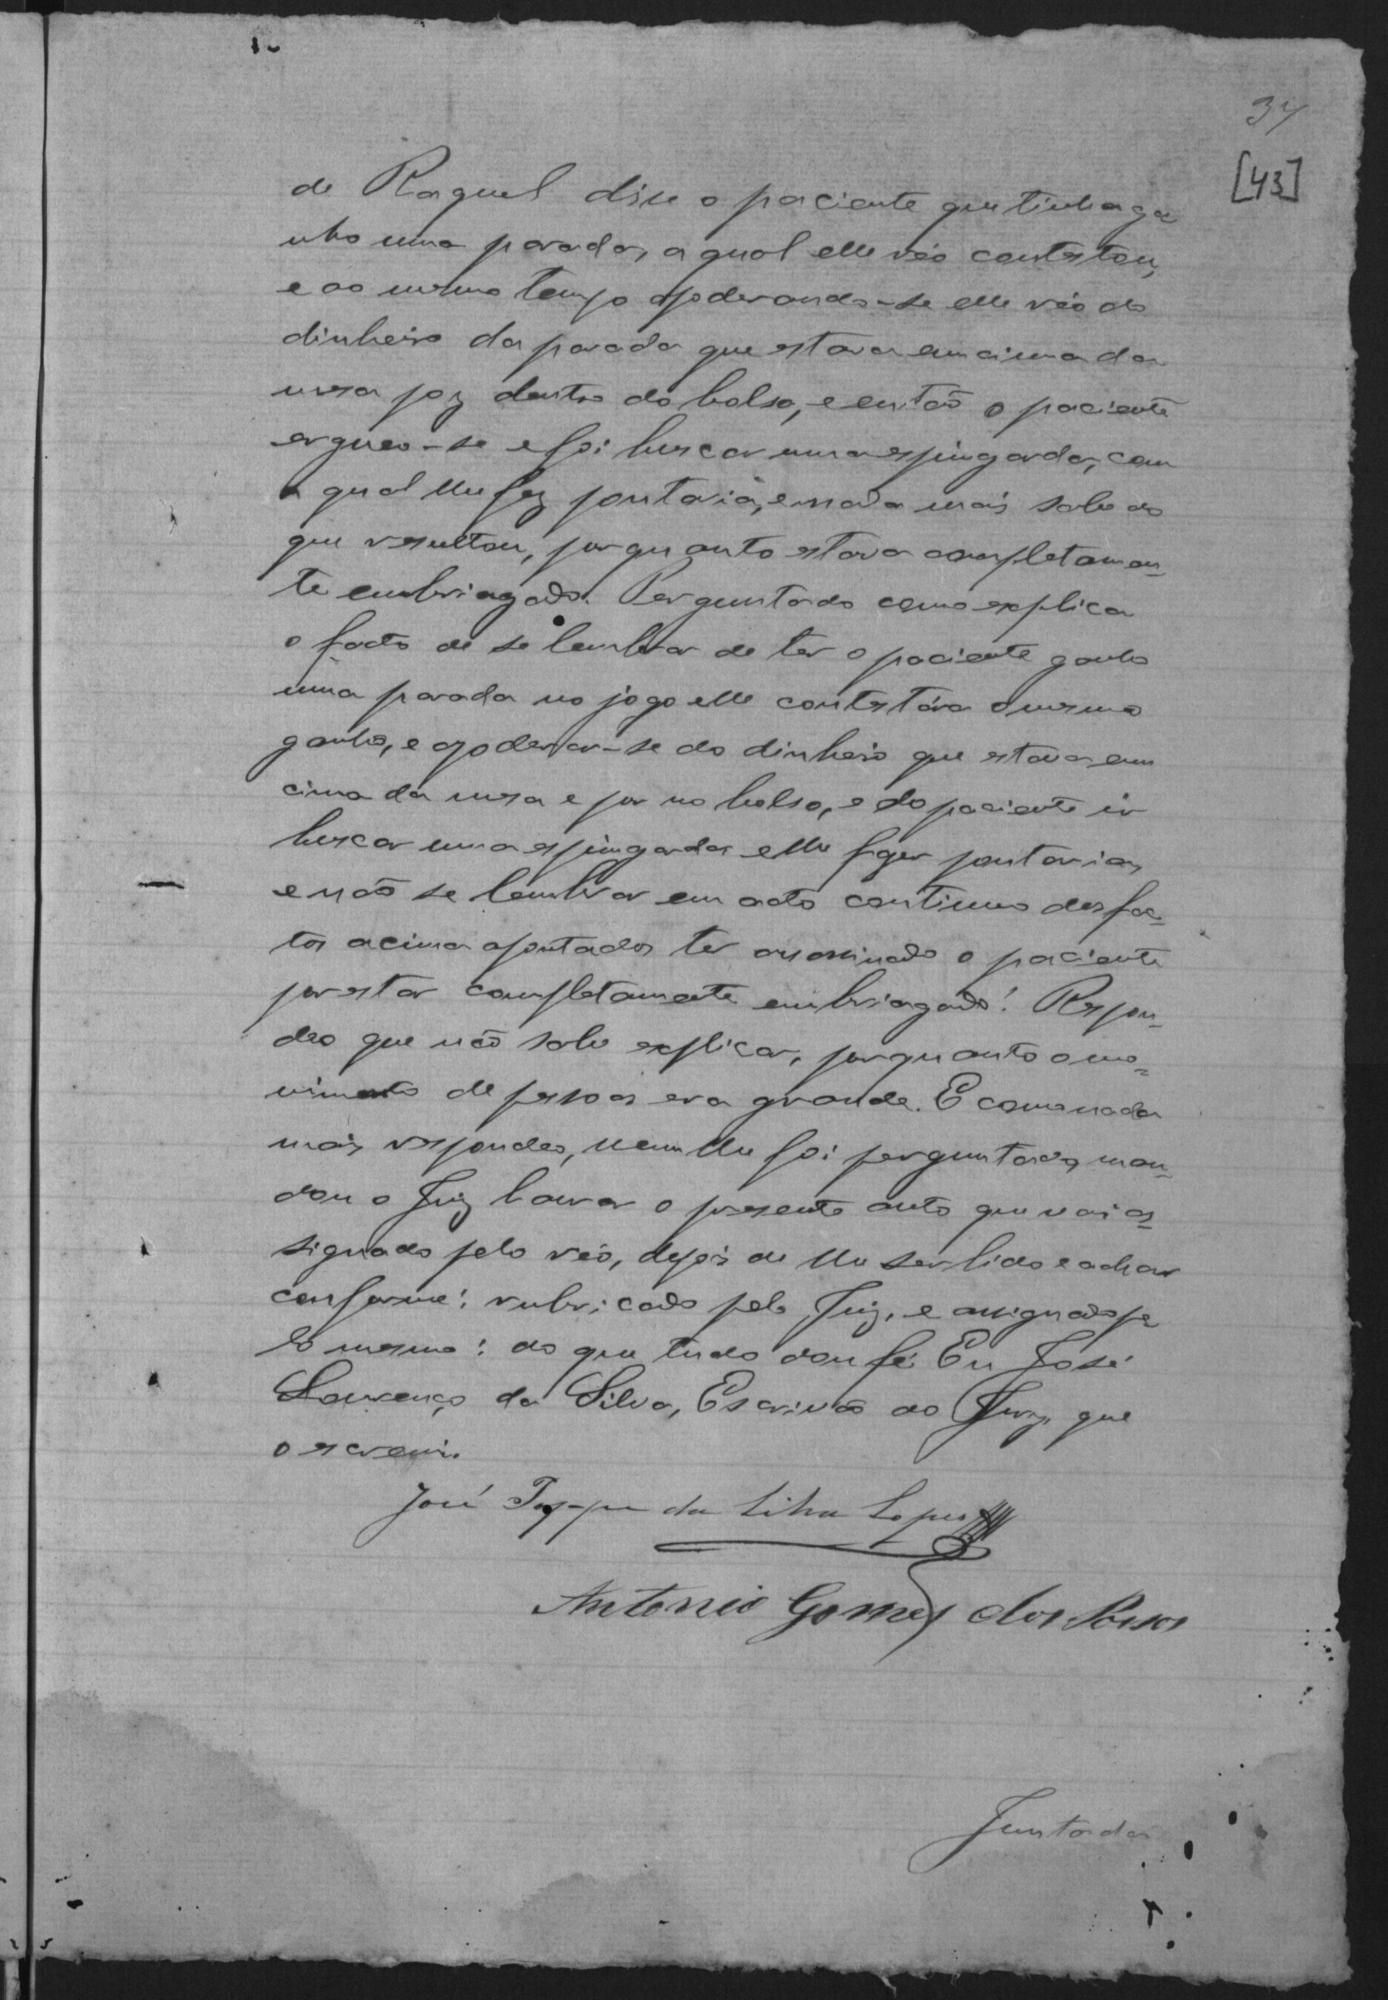 37
[43]
de Raquel disse o paciente que tinha ga
nho uma parada, a qual elle réo contestou,
e ao mesmo tempo apoderando-se elle réo do
dinheiro da parada que estava em cima da
mesa poz dentro do bolso, e então o paciente
ergueo-se e foi buscar uma espingarda, com
a qual lhe fez pontaria, e nada mais sabe do
que resultou, porquanto estava completamen=
te embriagado. Perguntado como explica
o facto de se lembrar de ter o paciente ganho
uma parada no jogo elle contestára o mesmo
ganho, e apoderar-se do dinheiro que estava em
cima da mesa e por no bolso, e do paciente ir
buscar uma espingarda e lhe fazer pontaria,
e não se lembrar em acto continuo dos fac=
tos acima apontados ter assassinado o paciente
por estar completamente embriagado! Respon=
deo que não sabe explicar, porquanto o mo=
vimento de pessoas era grande. E como nada
mais respondeo, nem lhe foi perguntado, man=
dou o Juiz lavrar o presente auto que vai as=
signado pelo réo, depois de lhe ser lido e achar
conforme; rubricado pelo Juiz, e assignado pe
lo mesmo; do que tudo dou fé. Eu José
Lourenço da Silva, Escrivão do Jury, que
o escrevi.
José da Silva Lopes
Antonio Gomes dos Passos
Juntada